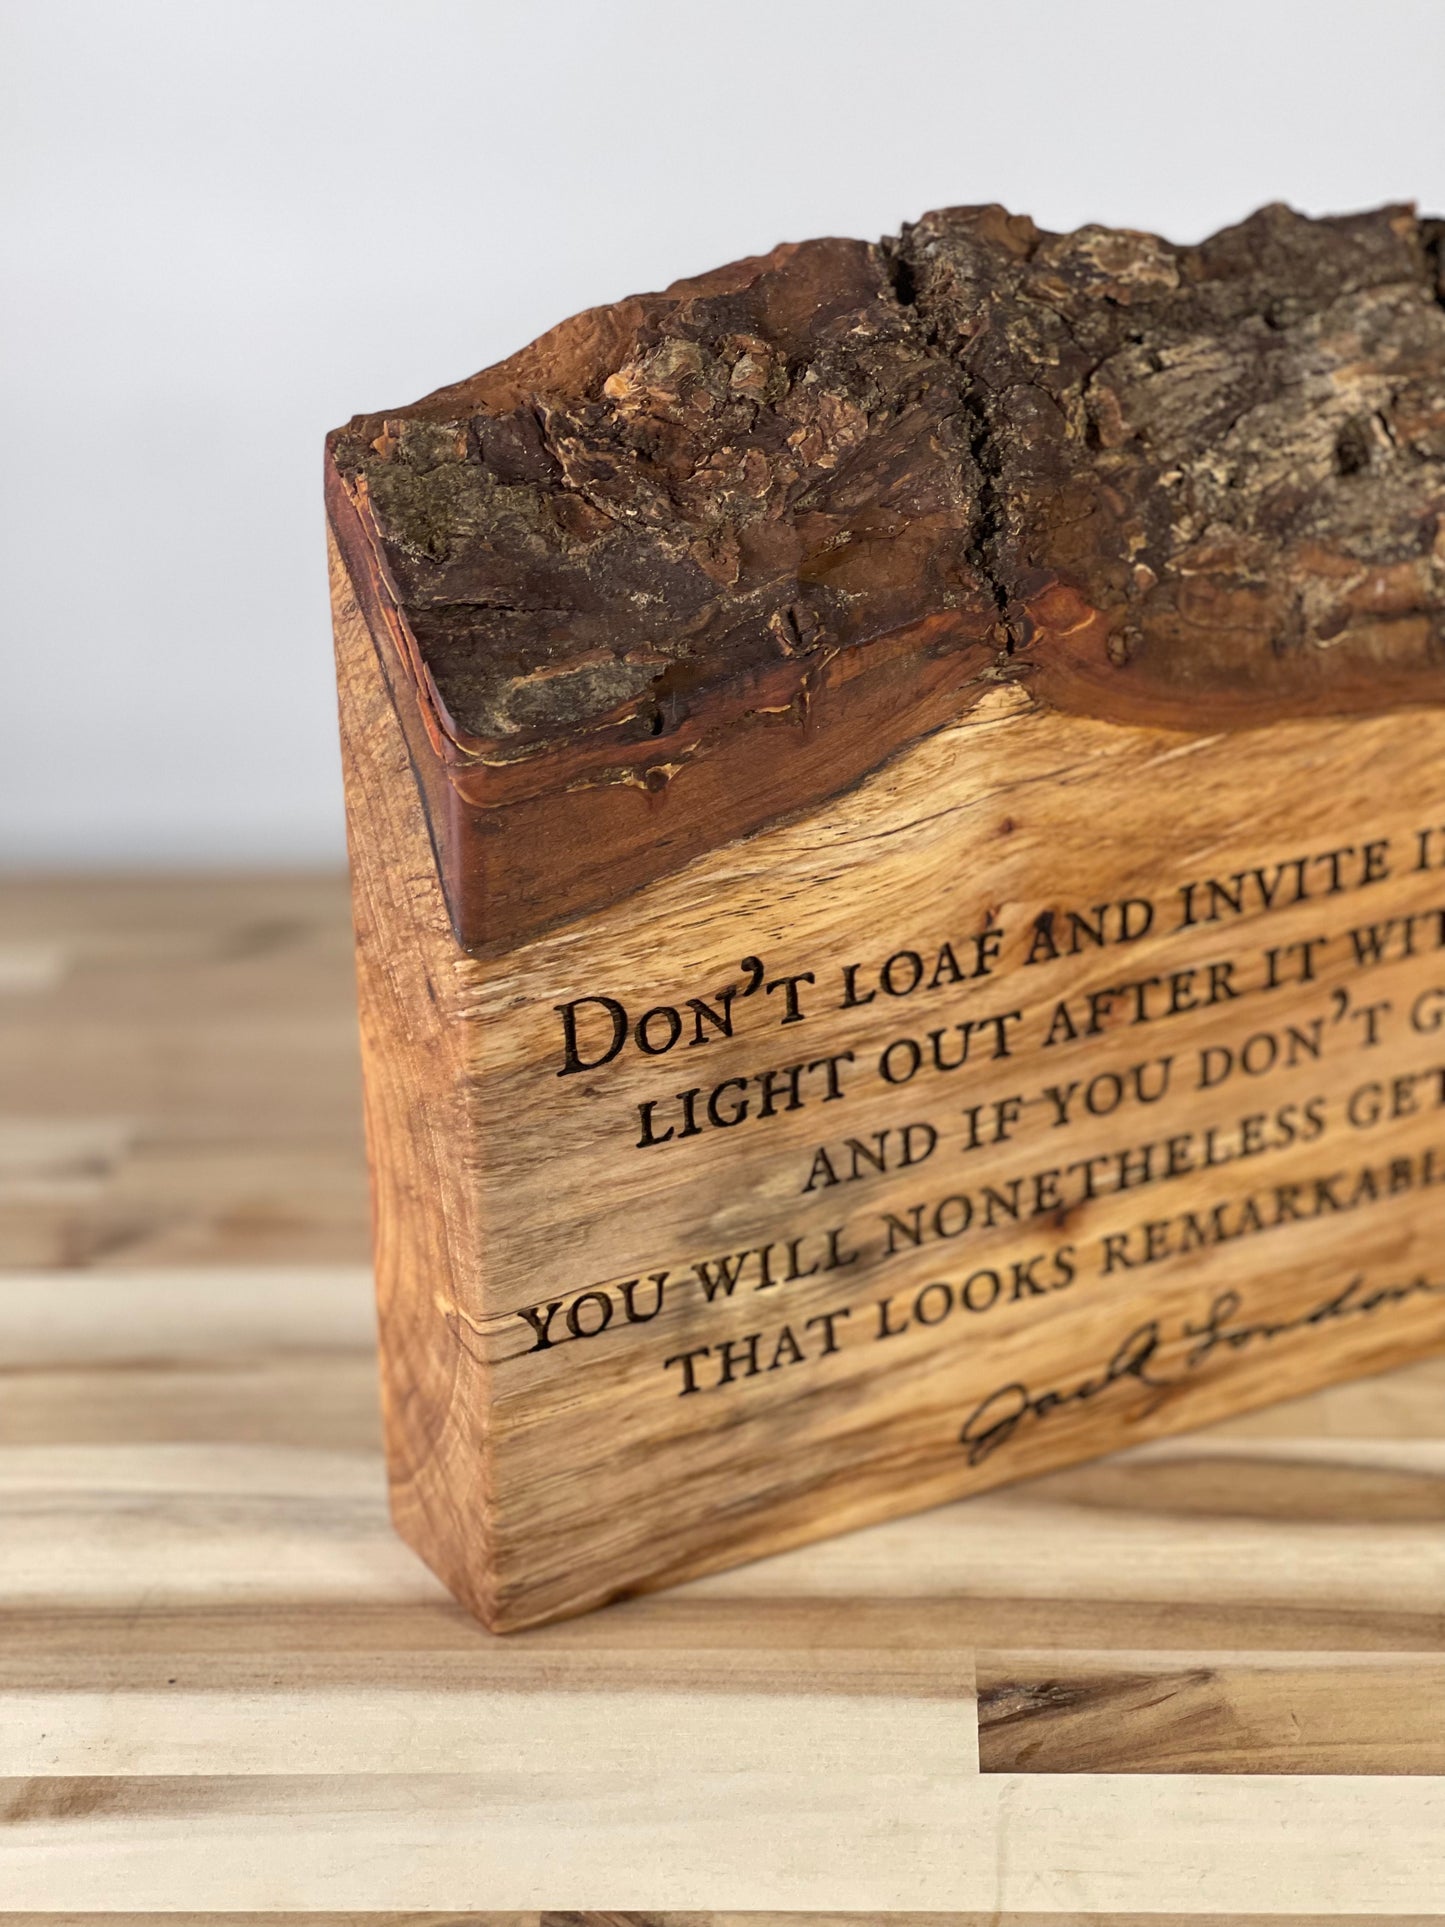 Don't loaf and invite
light out after it
and if you don't
you will nonetheless get
that looks
Jack London